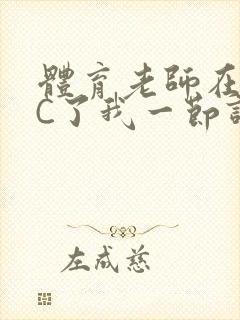 體育老師在
C了我一節
左成慈